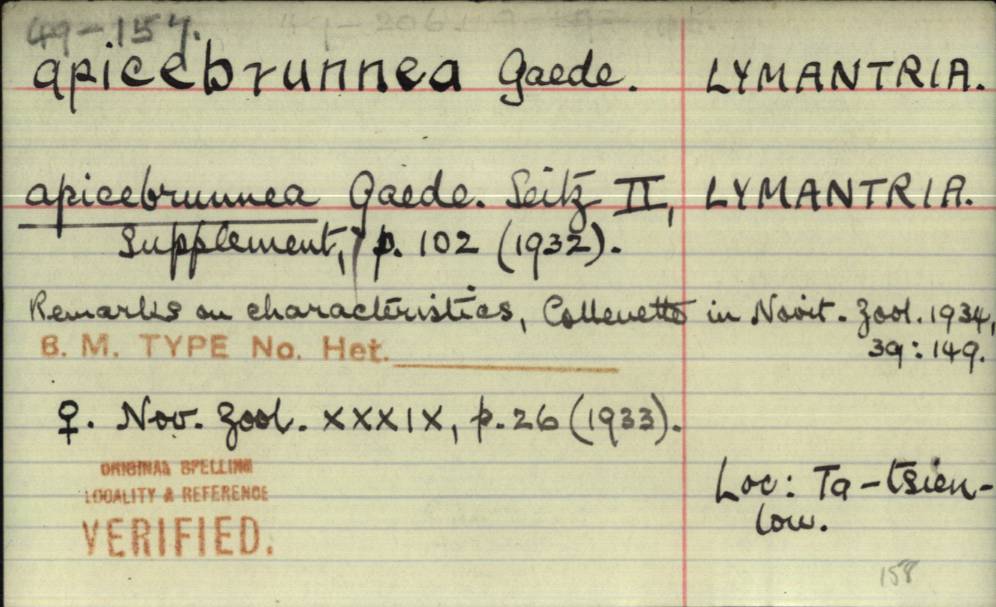 49-157.
apicebrunnea Gaede. LYMANTRIA.
apicebrunnea Gaede. Seitz II, LYMANTRIA.
Supplement, p. 102 (1932).
Remarks on characteristics, Collenette in Novit. Zool. 1934,
39:149.
B. M. TYPE No. Het.
♀. Nov. Zool. XXXIX, p. 26 (1933).
ORIGINAL SPELLING
LOCALITY & REFERENCE
VERIFIED.
Loc: Ta-tsien-
low.
158